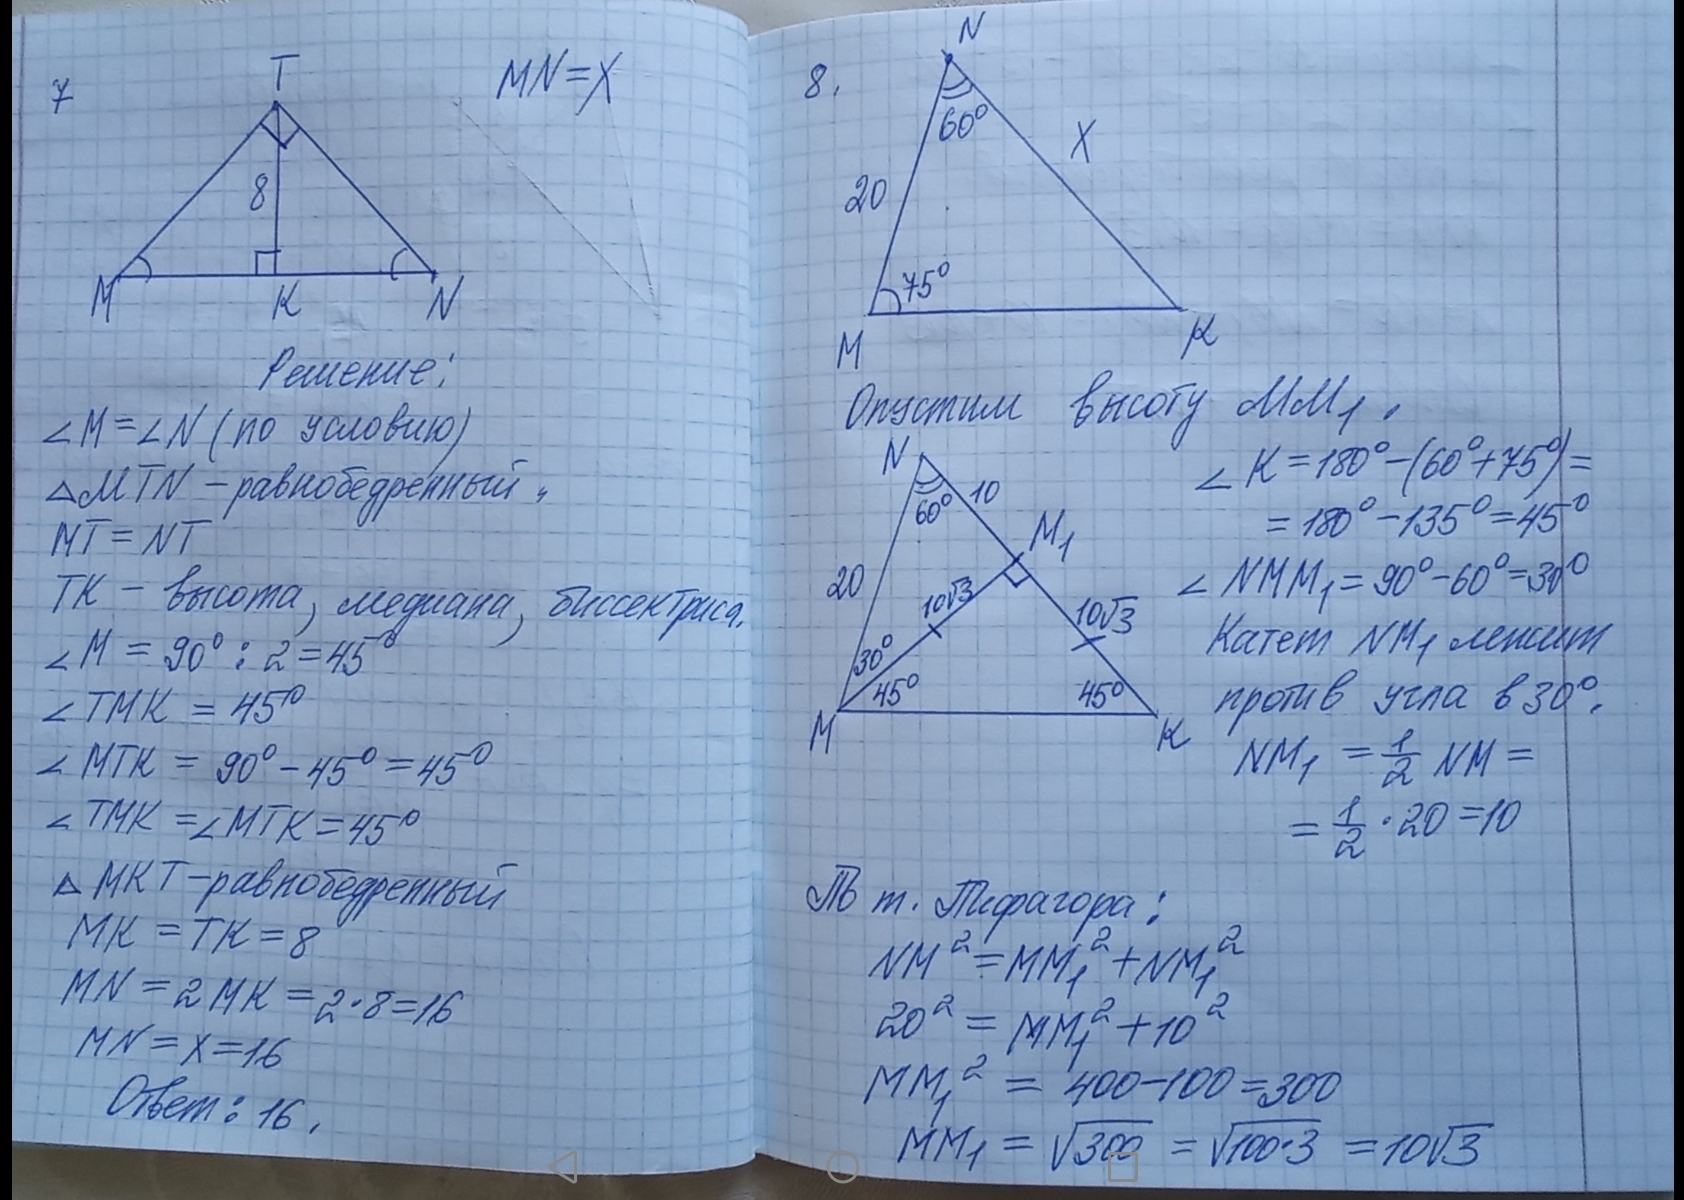 7
T
MN=X
8
M
K
N
Решение:
∠M=∠N (по условию)
△MTN – равнобедренный.
MT=NT
TK – высота, медиана, биссектриса.
∠M = 90° : 2=45°
∠TMK = 45°
∠MTK = 90°-45°=45°
∠TMK =∠MTK=45°
△MKT-равнобедренный
MK =TK=8
MN=2MK=2·8=16
MN=x=16
Ответ: 16.
8.
N
60°
X
20
75°
M
K
Опустим высоту MM₁.
N
60°
10
M₁
20
10√3
10√3
30°
45°
45°
M
K
∠K=180°-(60°+75°)=
=180°-135°=45°
∠NMM₁=90°-60°=30°
Катет NM₁ лежит
против угла в 30°.
NM₁ = 1/2 NM =
= 1/2 · 20 =10
т. Пифагора:
NM²=MM₁²+NM₁²
20² = MM₁²+10²
MM₁² = 400-100=300
MM₁ = √300 = √100·3 =10√3